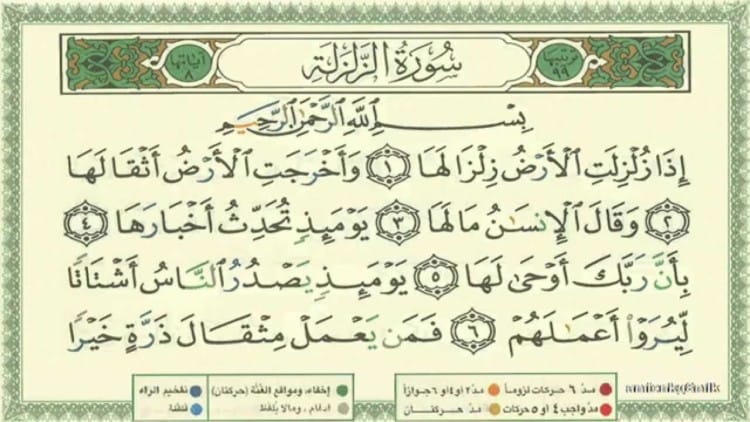 ترتيبها ٩٩
سُورَةُ الزَّلْزَلَةِ
آياتها ٨
بِسْمِ ٱللَّهِ ٱلرَّحْمَٰنِ ٱلرَّحِيمِ
إِذَا زُلْزِلَتِ ٱلْأَرْضُ زِلْزَالَهَا ١ وَأَخْرَجَتِ ٱلْأَرْضُ أَثْقَالَهَا
٢ وَقَالَ ٱلْإِنسَٰنُ مَا لَهَا ٣ يَوْمَئِذٍ تُحَدِّثُ أَخْبَارَهَا ٤
بِأَنَّ رَبَّكَ أَوْحَىٰ لَهَا ٥ يَوْمَئِذٍ يَصْدُرُ ٱلنَّاسُ أَشْتَاتًا
لِّيُرَوْا۟ أَعْمَٰلَهُمْ ٦ فَمَن يَعْمَلْ مِثْقَالَ ذَرَّةٍ خَيْرًا
مدّ ٦ حركات لزوماً مدّ ٢ أو ٤ أو ٦ جوازاً
مدّ واجب ٤ أو ٥ حركات مدّ حركتان
إخفاء، ومواقع الغُنَّة (حركتان) تفخيم الراء
ادغام، ومالا يُلفظ قلقلة